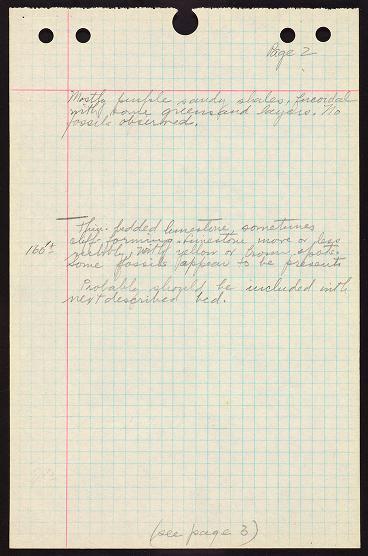 Page 2
Mostly purple sandy shales,
with some greensand layers. No
fossils observed.
Thin-bedded limestone, sometimes
cliff forming. Limestone more or less
166'± nubbly, with yellow or brown spots.
Some fossils appear to be present.
Probably should be included with
next described bed.
(see page 3)